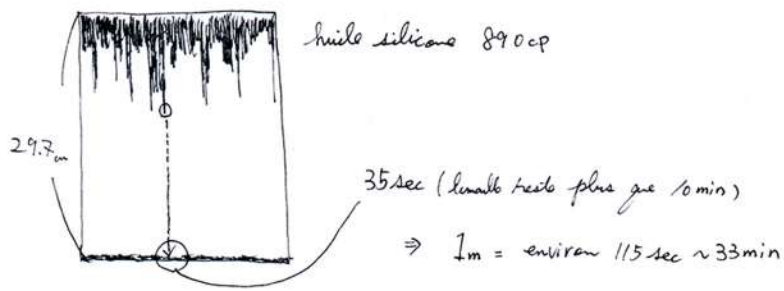 huile silicone 890 cp
29.7 cm
35 sec (limaille reste plus que 10 min)
⇒ 1m = environ 115 sec ~ 33 min